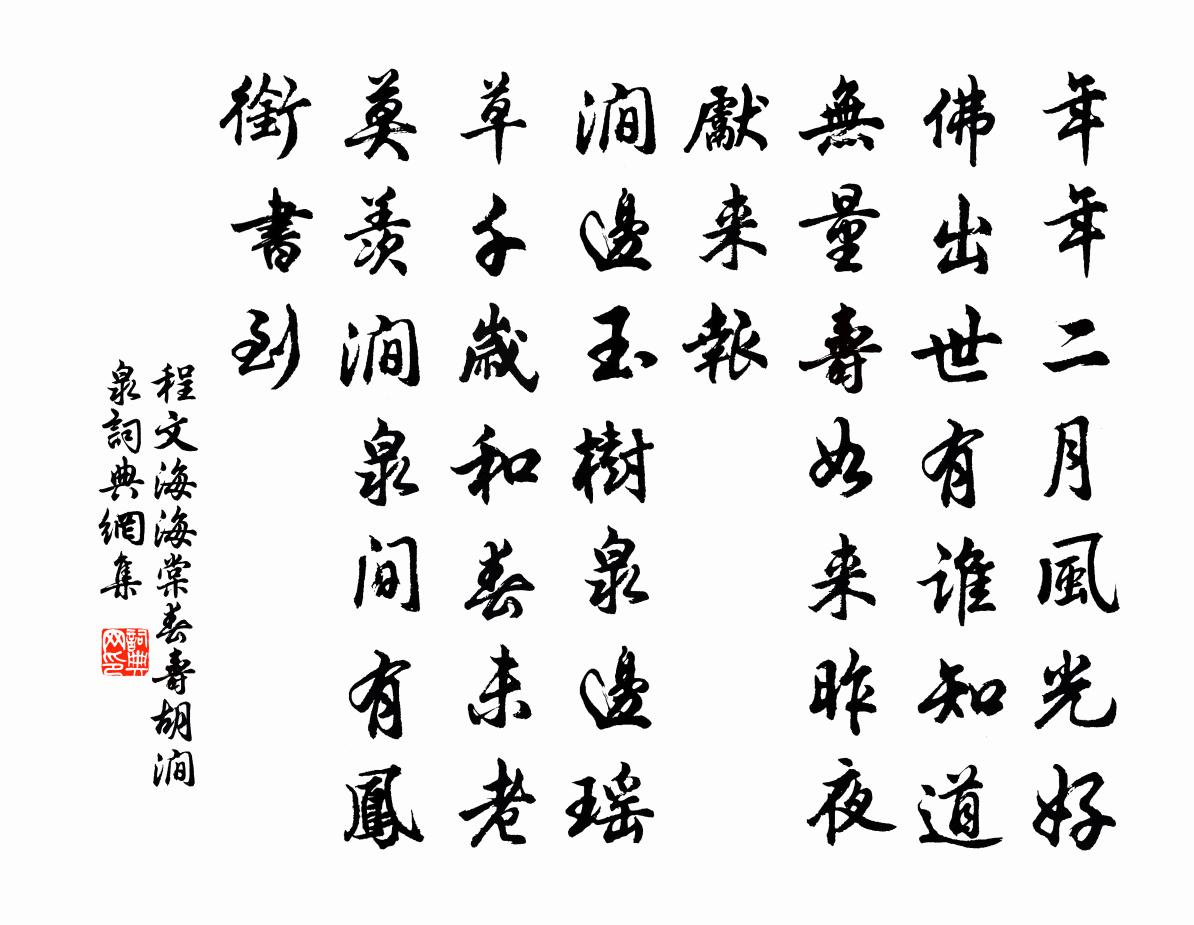 年年二月風光好
佛出世有誰知道
無量壽如来昨夜
獻来報
澗邊玉樹泉邊瑶
草千歲和春未老
莫羨澗泉間有鳳
銜書到
程文海海棠春壽胡澗
泉詞典網集
詞典网印